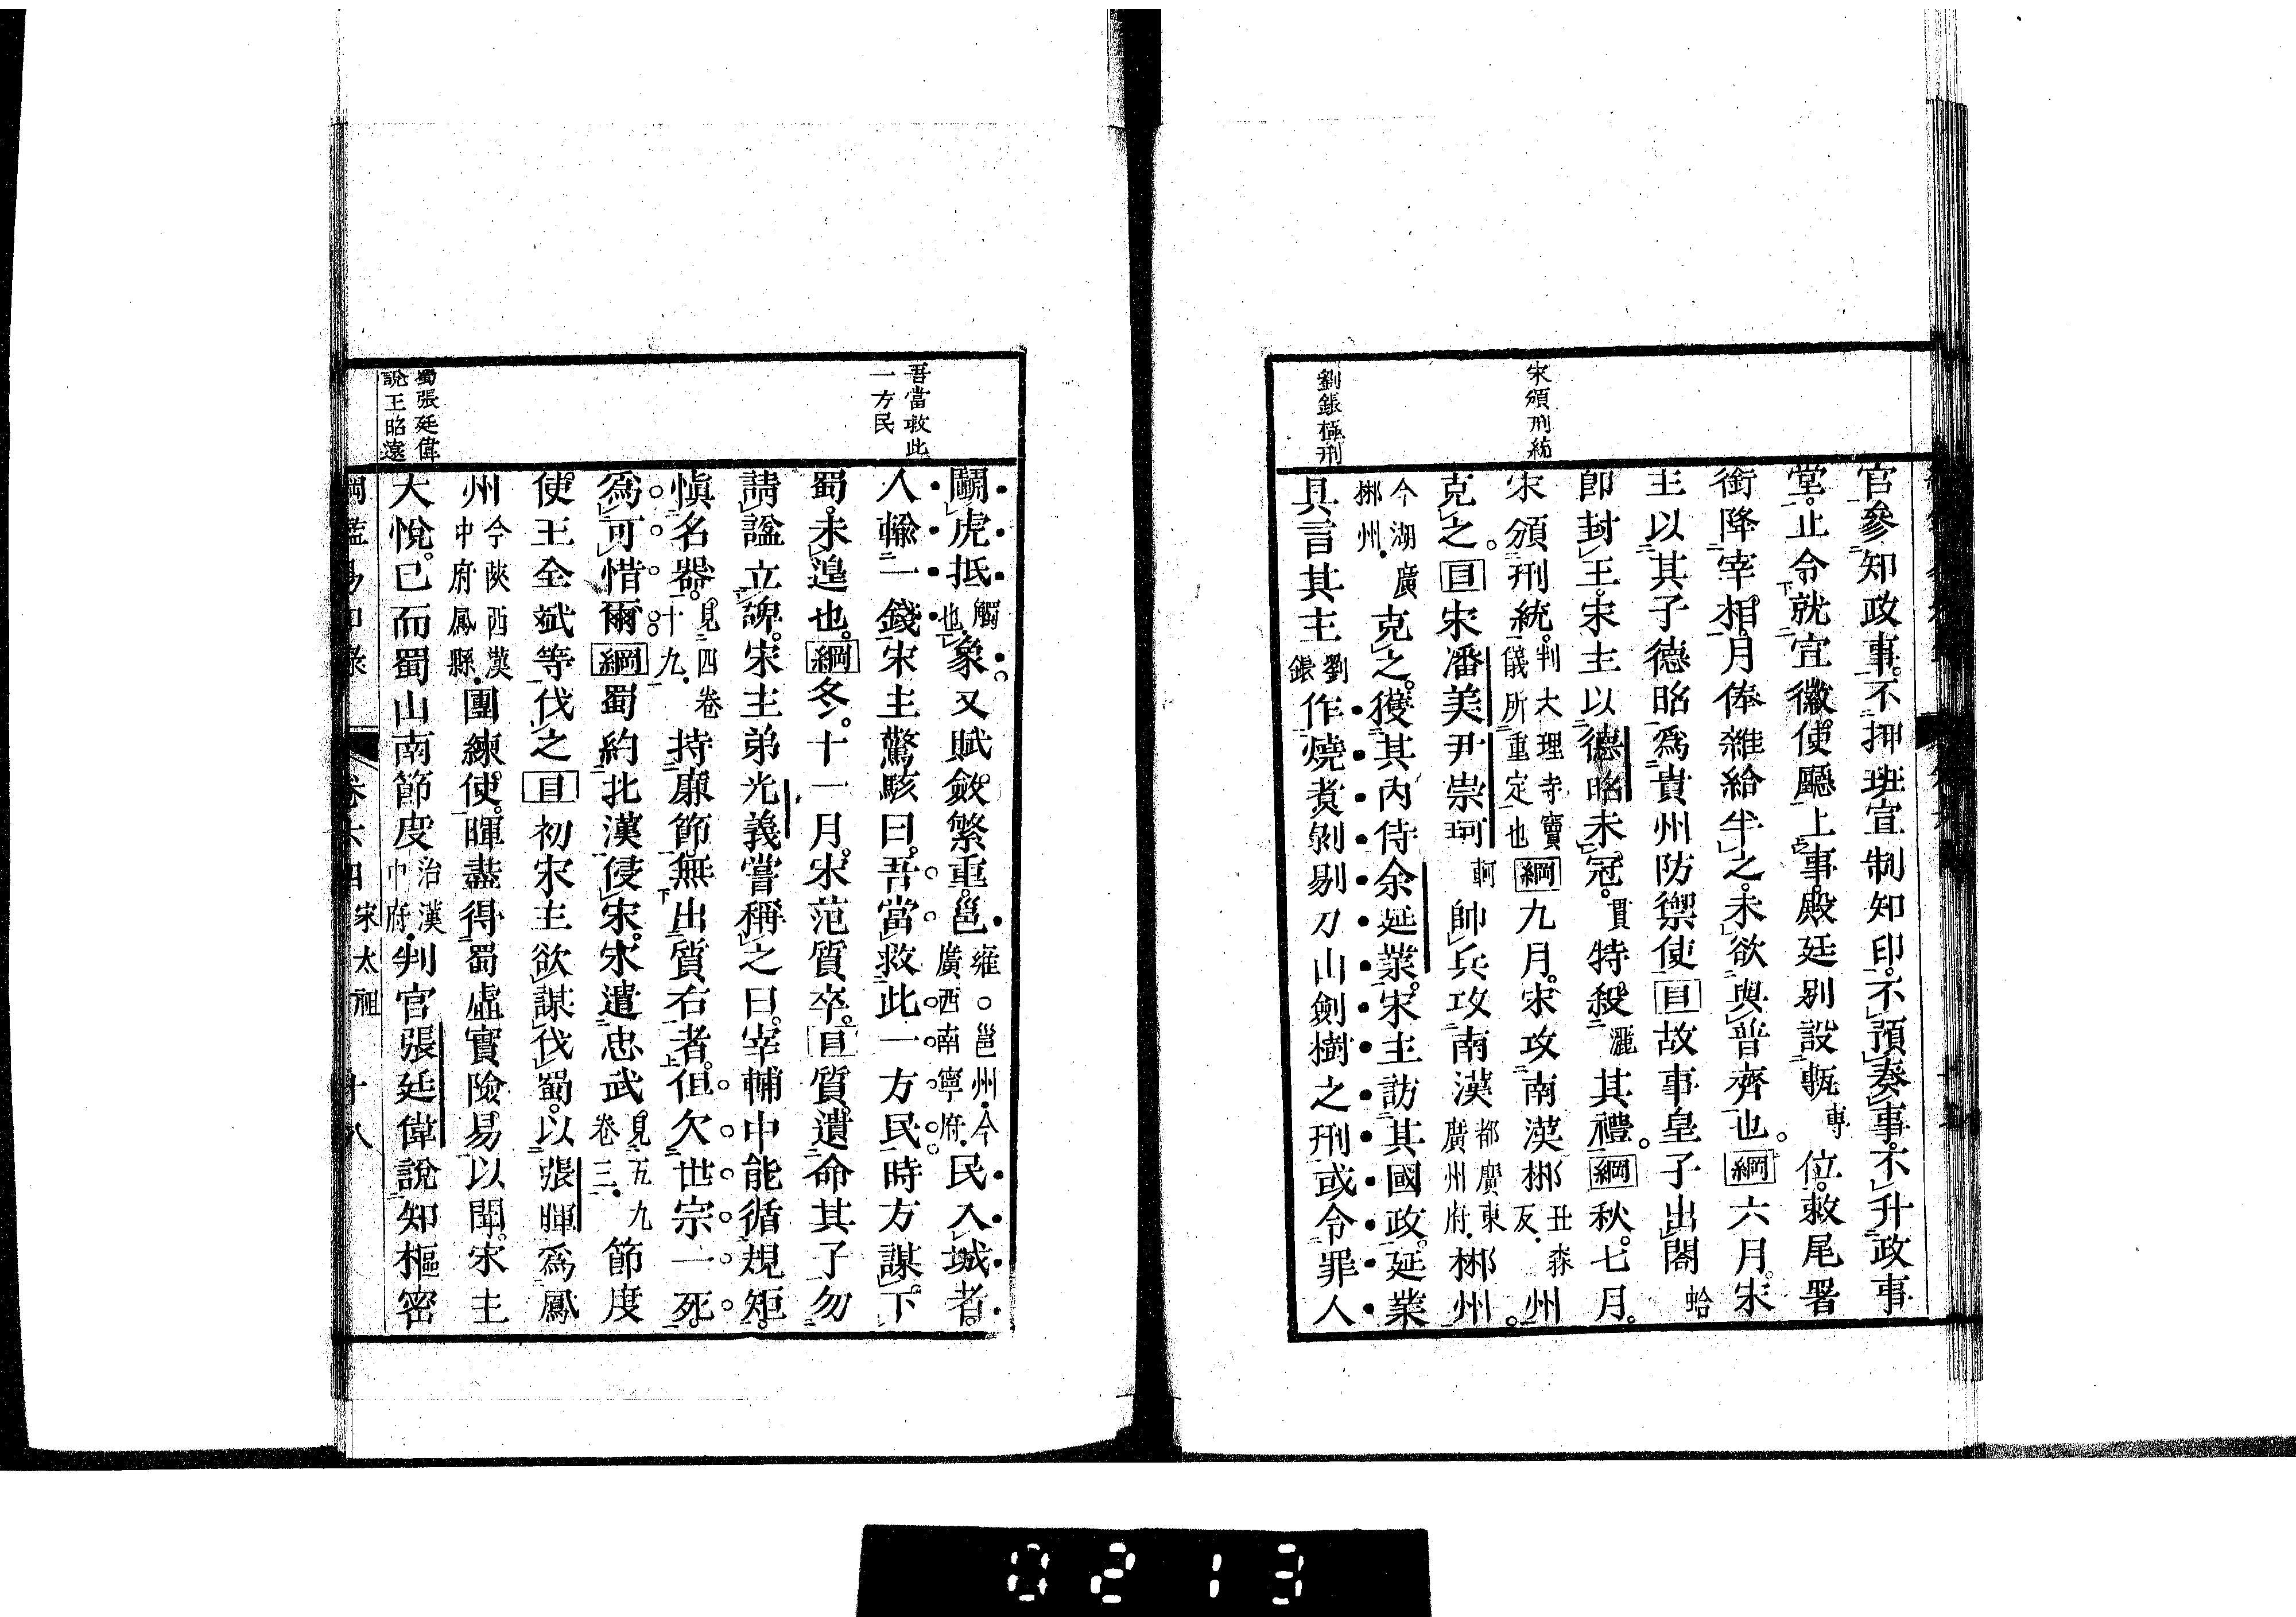 宋頒刑統
劉鋹極刑
官參知政事。不押班宣制知印。不預奏事。不升政事
堂。止令就宜徽使廳上事。殿廷别設甎專位。敕尾署
銜降宰相。月俸雜給半之。未欲與普齊也。綱六月。宋
主以其子德昭爲貴州防禦使目故事皇子出閤蛤
卽封王。宋主以德昭未冠。貫特殺灑其禮。綱秋。七月。
宋頒刑統。判大理寺竇儀所重定也綱九月。宋攻南漢郴丑森反州。
克之。目宋潘美尹崇珂軻帥兵攻南漢都廣東廣州府郴州。
今湖廣郴州克之。獲其內侍余延業。宋主訪其國政。延業
具言其主劉鋹作燒煑剝剔刀山劍樹之刑。或令罪人
吾當救此一方民
蜀張廷偉說王昭遠
鬭虎抵觸也象。又賦斂繁重。邕雍○邕州今廣西南寧府民入城者。
人輸一錢。宋主驚駭曰。吾當救此一方民。時方謀下
蜀。未遑也。綱冬。十一月。宋范質卒。目質遺命其子勿
請謚立碑。宋主弟光義嘗稱之曰。宰輔中能循規矩。
愼名器。見四卷十九持廉節。無出質右者。但欠世宗一死。
爲可惜爾綱蜀約北漢侵宋。宋遣忠武見五九卷三節度
使王全斌等伐之目初宋主欲謀伐蜀。以張暉爲鳳
州今陝西漢中府鳳縣團練使。暉盡得蜀虛實險易以聞。宋主
大悅。已而蜀山南節度治漢中府判官張廷偉說知樞密
卷六四 宋太祖 十八
0213